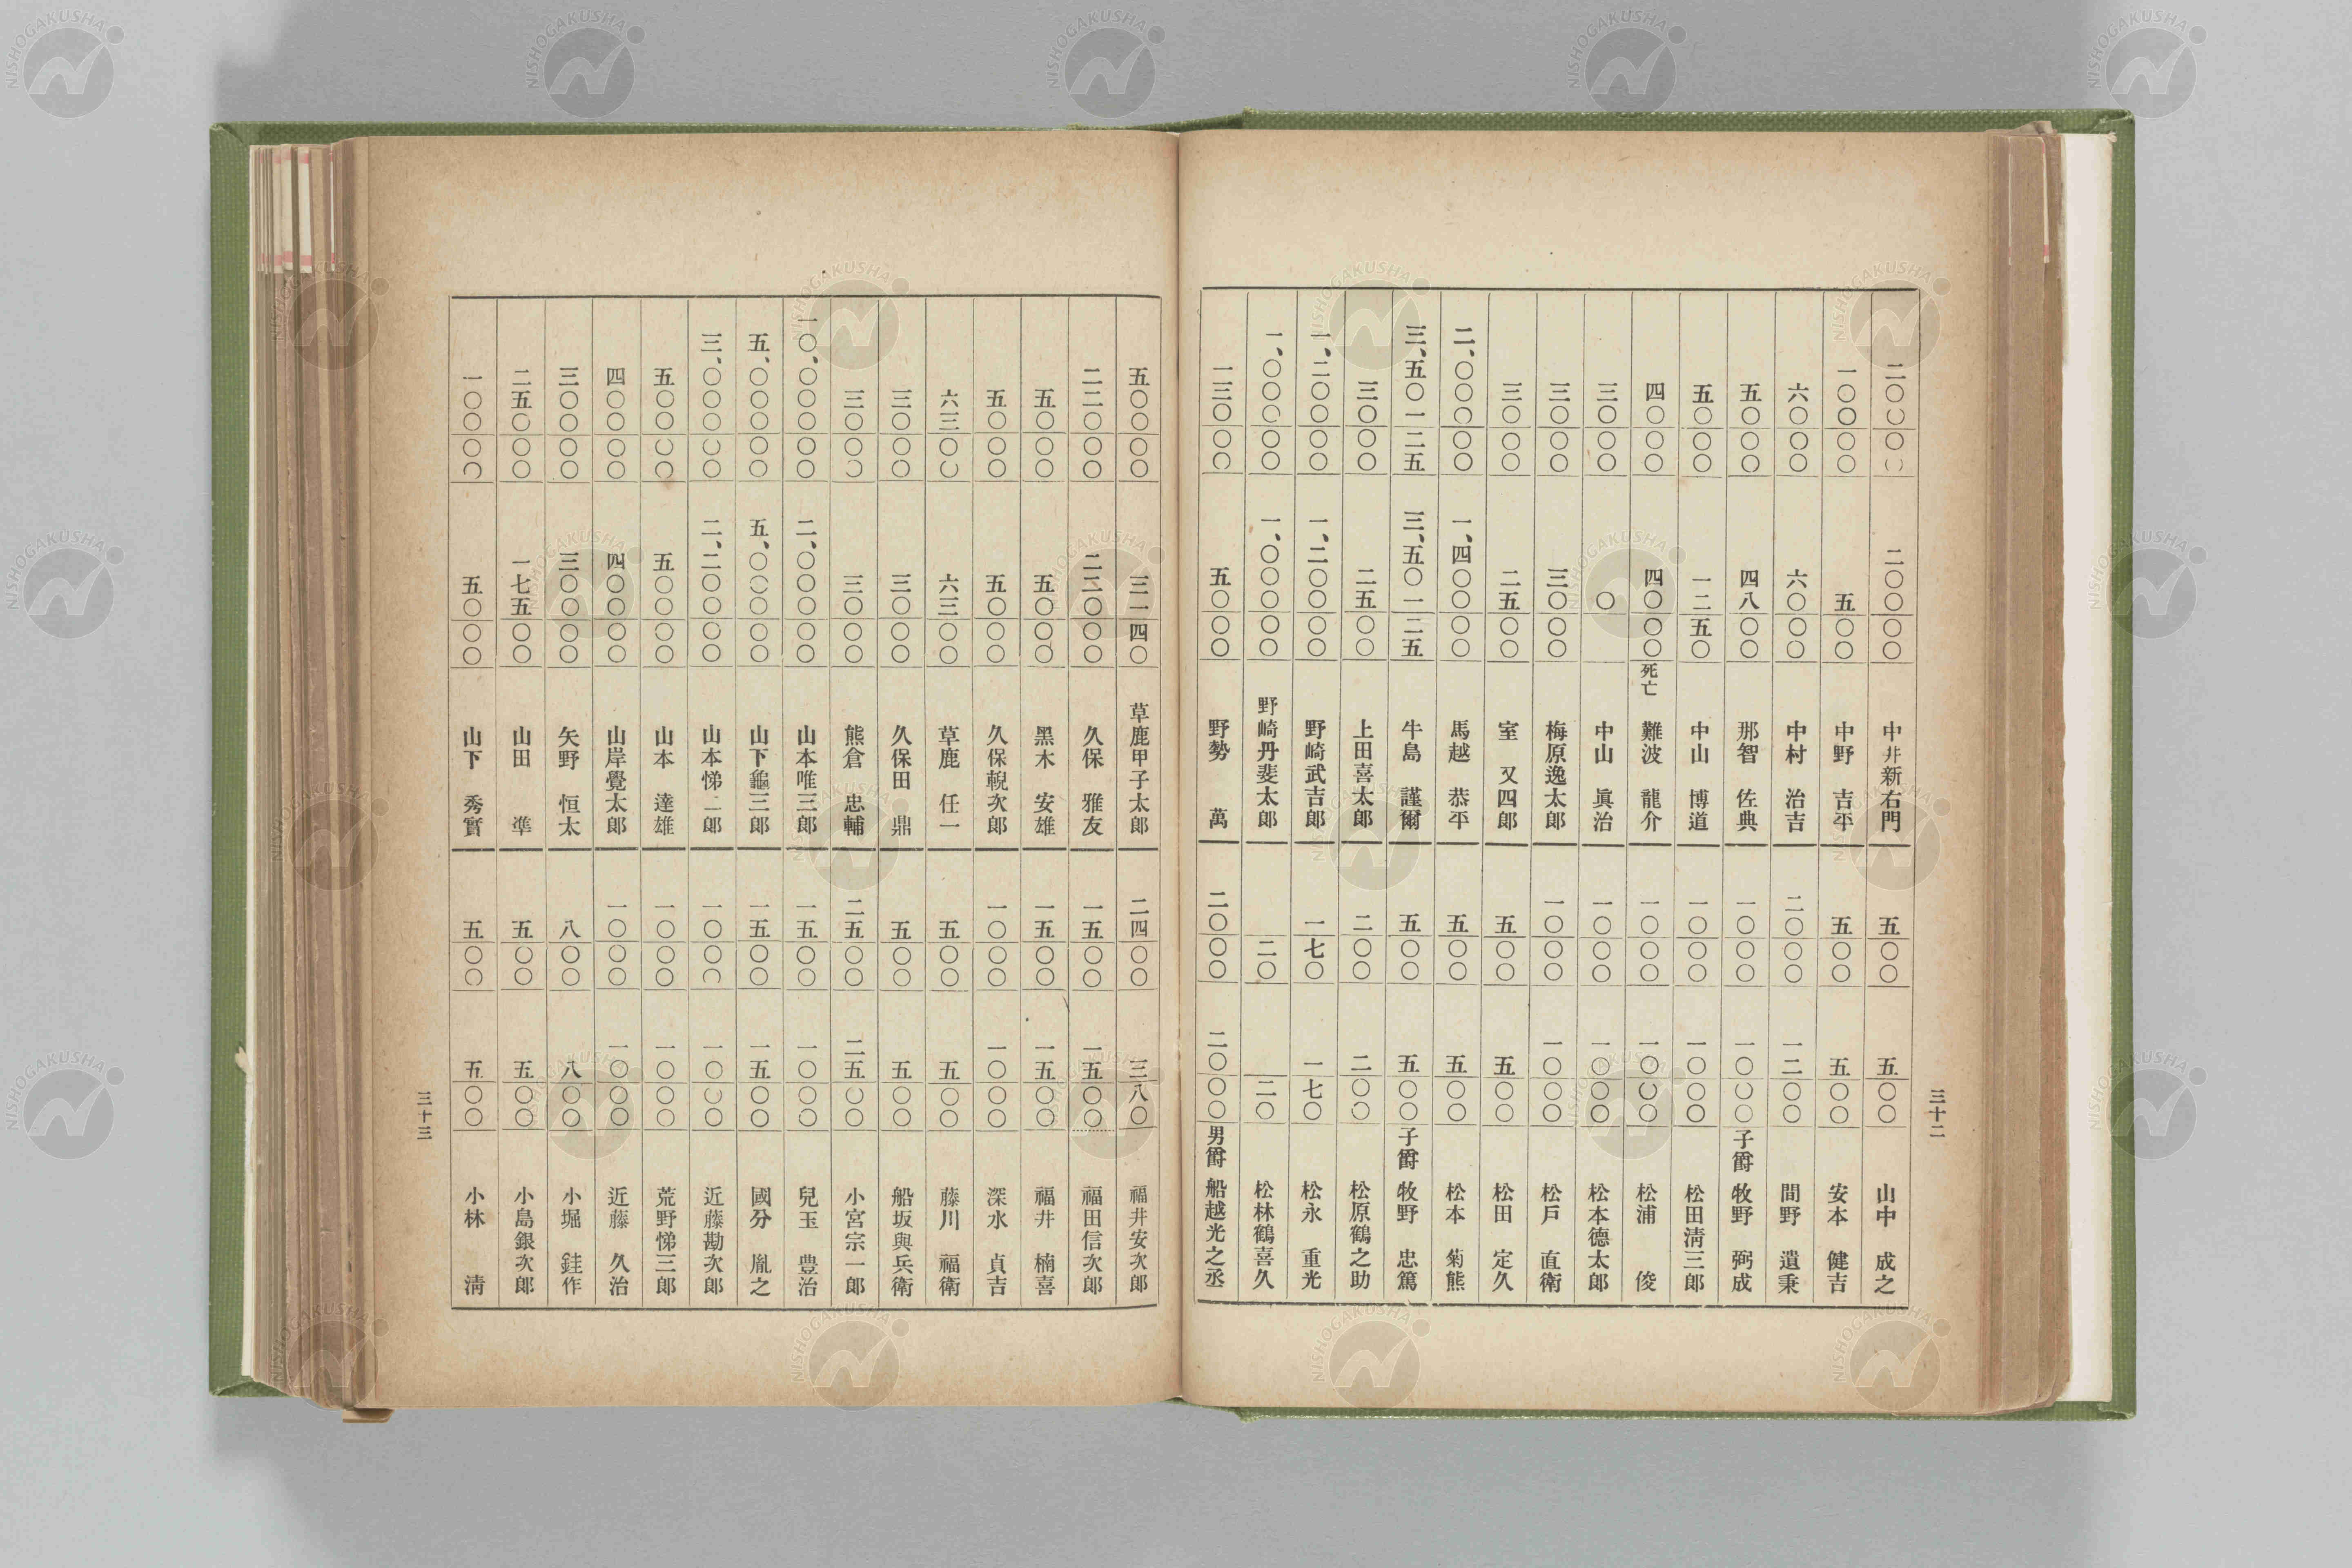 二〇〇〇〇 二〇〇〇〇 中井新右門 五〇〇 五〇〇 山中 成之
一〇〇〇〇 五〇〇 中野 吉平 五〇〇 五〇〇 安本 健吉
六〇〇〇 六〇〇〇 中村 治吉 二〇〇〇 一二〇〇 間野 遺秉
五〇〇〇 四八〇〇 那智 佐典 一〇〇〇 一〇〇〇 子爵 牧野 弼成
五〇〇〇 一二五〇 中山 博道 一〇〇〇 一〇〇〇 松田清三郎
四〇〇〇 四〇〇〇 死亡 難波 龍介 一〇〇〇 一〇〇〇 松浦 俊
三〇〇〇 〇 中山 眞治 一〇〇〇 一〇〇〇 松本德太郎
三〇〇〇 三〇〇〇 梅原逸太郎 一〇〇〇 一〇〇〇 松戸 直衛
三〇〇〇 二五〇〇 室 又四郎 五〇〇 五〇〇 松田 定久
二、〇〇〇〇〇 一、四〇〇〇〇 馬越 恭平 五〇〇 五〇〇 松本 菊熊
三、五〇一二五 三、五〇一二五 牛島 謹爾 五〇〇 五〇〇 子爵 牧野 忠篤
三〇〇〇 二五〇〇 上田喜太郎 二〇〇 二〇〇 松原鶴之助
一、二〇〇〇〇 一、二〇〇〇〇 野崎武吉郎 一七〇 一七〇 松永 重光
一、〇〇〇〇〇 一、〇〇〇〇〇 野崎丹斐太郎 二〇 二〇 松林鶴喜久
一三〇〇〇 五〇〇〇 野勢 萬 二〇〇〇 二〇〇〇 男爵 船越光之丞
三十二
五〇〇〇〇 三一四〇 草鹿甲子太郎 二四〇〇 三八〇 福井安次郎
二二〇〇〇 二二〇〇〇 久保 雅友 一五〇〇 一五〇〇 福田信次郎
五〇〇〇 五〇〇〇 黑木 安雄 一五〇〇 一五〇〇 福井 楠喜
五〇〇〇 五〇〇〇 久保輗次郎 一〇〇〇 一〇〇〇 深水 貞吉
六三〇〇 六三〇〇 草鹿 任一 五〇〇 五〇〇 藤川 福衛
三〇〇〇 三〇〇〇 久保田 鼎 五〇〇 五〇〇 船坂與兵衛
三〇〇〇 三〇〇〇 熊倉 忠輔 二五〇〇 二五〇〇 小宮宗一郎
一〇、〇〇〇〇〇 二、〇〇〇〇〇 山本唯三郎 一五〇〇 一〇〇〇 兒玉 豊治
五、〇〇〇〇〇 五、〇〇〇〇〇 山下龜三郎 一五〇〇 一五〇〇 國分 胤之
三、〇〇〇〇〇 二、二〇〇〇〇 山本悌二郎 一〇〇〇 一〇〇〇 近藤勘次郎
五〇〇〇〇 五〇〇〇〇 山本 達雄 一〇〇〇 一〇〇〇 荒野悌三郎
四〇〇〇〇 四〇〇〇〇 山岸覺太郎 一〇〇〇 一〇〇〇 近藤 久治
三〇〇〇〇 三〇〇〇〇 矢野 恒太 八〇〇 八〇〇 小堀 銈作
二五〇〇〇 一七五〇〇 山田 準 五〇〇 五〇〇 小島銀次郎
一〇〇〇〇 五〇〇〇 山下 秀實 五〇〇 五〇〇 小林 淸
三十三
NISHOGAKUSHA